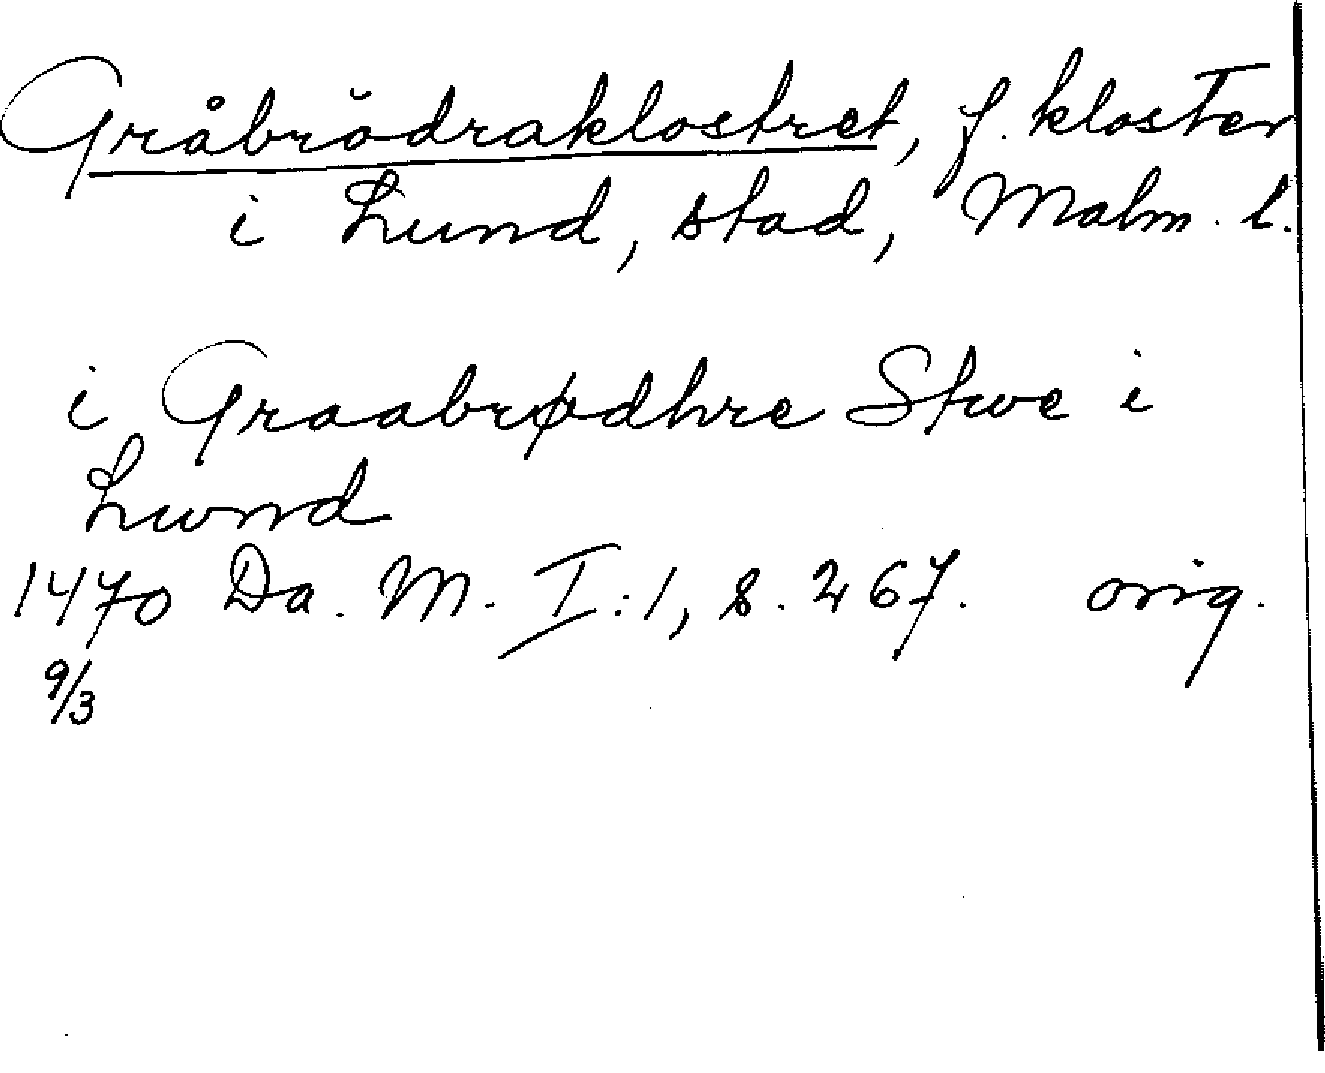 Gråbrödraklostret, f. kloster
i Lund, stad, Malm. l.
i Graabrødhre Stwe i
Lwnd
1470 Da. M. I:1, s. 267. orig.
9/3